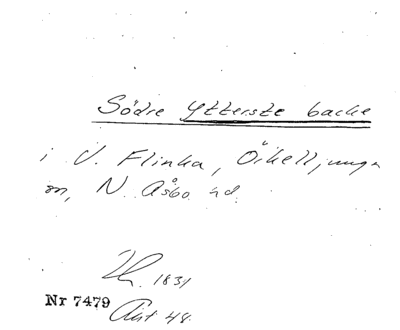 Södre Ytterste backe
i V. Flinka, Örkelljunga
sn, N. Åsbo hd.
1831
Nr 7479
Akt 48.